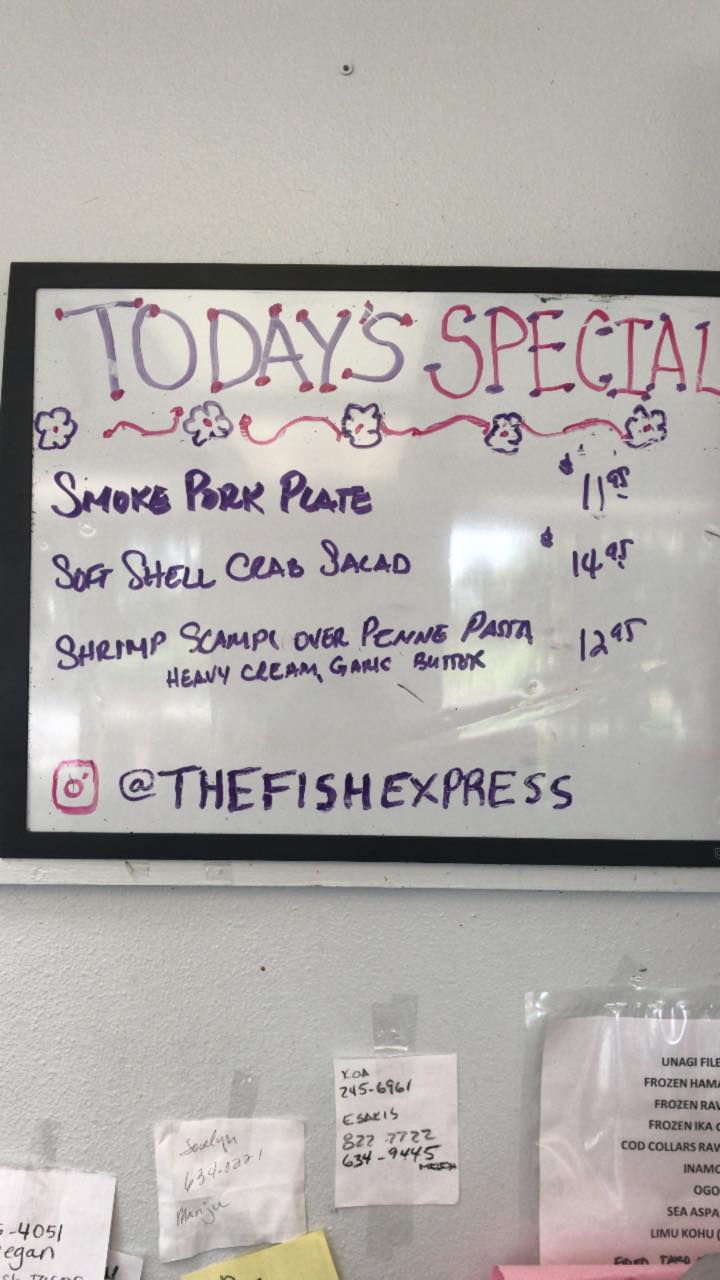 TODAY'S SPECIAL
SMOKE PORK PLATE $11.95
SOFT SHELL CRAB SALAD $14.95
SHRIMP SCAMPI OVER PENNE PASTA 12.95
HEAVY CREAM, GARLIC BUTTER
@THEFISHEXPRESS
KOA
245-6961
ESAKIS
822 7722
634-9445
Jocelyn
634-0221
-4051
egan
UNAGI FILE
FROZEN HAMA
FROZEN RAV
FROZEN IKA
COD COLLARS RAV
INAMO
OGO
SEA ASPA
LIMU KOHU (
FRIED TAKO